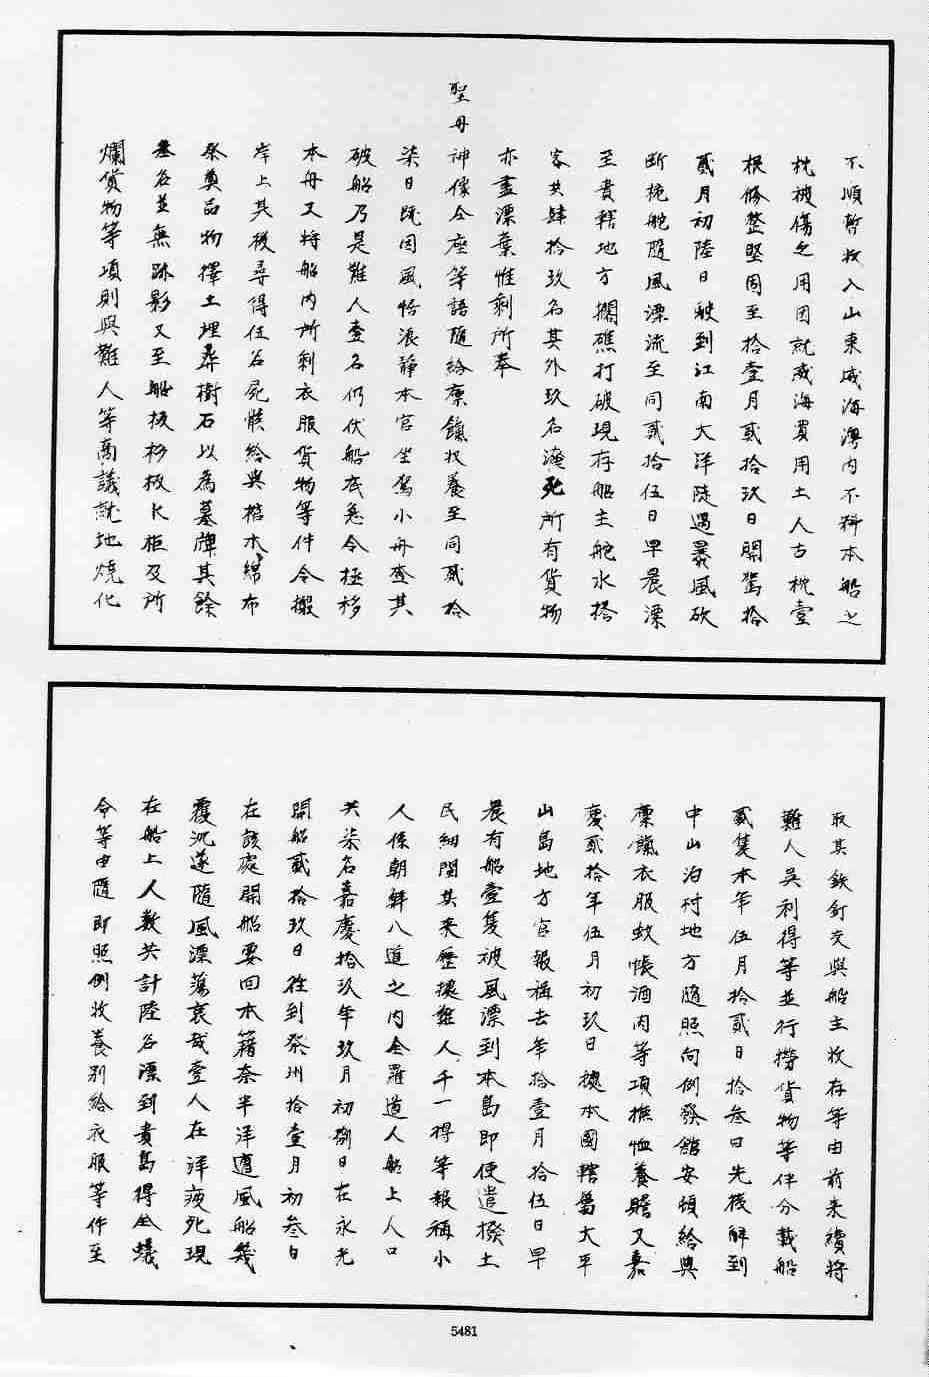 不順暫收入山東威海灣内不料本船之
杙被傷之用因就威海買用土人古杙壹
根修整堅固至拾壹月貳拾玖日開駕拾
貳月初陸日駛到江南大洋陡遇暴風砍
断桅舵隨風漂流至同貳拾伍日早晨漂
至貴轄地方擱礁打破現存船主舵水搭
客共肆拾玖名其外玖名淹死所有貨物
亦盡漂棄惟剩所奉
聖母神像令座等語隨給廩餼收養至同貳拾
柒日既因風恬浪静本官坐駕小舟查其
破船乃是難人壹名仍伏船底急令拯移
本舟又将船内所剩衣服貨物等件令搬
岸上其後尋得伍名屍骸給與棺木綿布
祭奠品物擇土埋葬樹石以為墓牌其餘
叁名並無跡影又至船板杉板木柜及所
爛貨物等項則與難人等商議就地燒化
取其鉄釘交與船主收存等由前来續将
難人吳利得等並行撈貨物等件分載船
貳隻本年伍月拾貳日拾叁日先後解到
中山泊村地方隨照向例發館安頓給與
廩餼衣服蚊帳酒肉等項撫恤養贍又嘉
慶貳拾年伍月初玖日據本國轄屬大平
山島地方官報稱去年拾壹月拾伍日早
晨有船壹隻被風漂到本島即使遣撥土
民細問其来歷據難人千一得等報稱小
人係朝鮮八道之内全羅道人船上人口
共柒名嘉慶拾玖年玖月初捌日在永光
開船貳拾玖日往到癸州拾壹月初叁日
在該處開船要回本籍奈半洋遭風船幾
覆沉遂隨風漂蕩哀哉壹人在洋疲死現
在船上人數共計陸名漂到貴島得全蟻
命等由隨即照例收養別給衣服等件至
5481